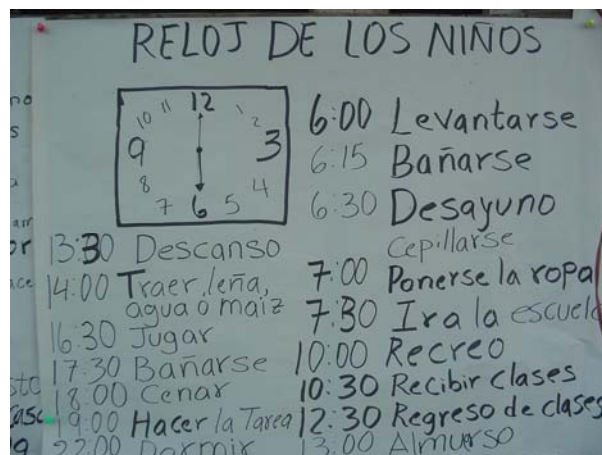 RELOJ DE LOS NIÑOS
10 11 12 1 2
9 3
8 7 6 5 4
6:00 Levantarse
6:15 Bañarse
6:30 Desayuno
Cepillarse
7:00 Ponerse la ropa
7:30 Ir a la escuela
10:00 Recreo
10:30 Recibir clases
12:30 Regreso de clases
13:00 Almuerso
13:30 Descanso
14:00 Traer leña,
agua o maiz
16:30 Jugar
17:30 Bañarse
18:00 Cenar
19:00 Hacer la Tarea
22:00 Dormir